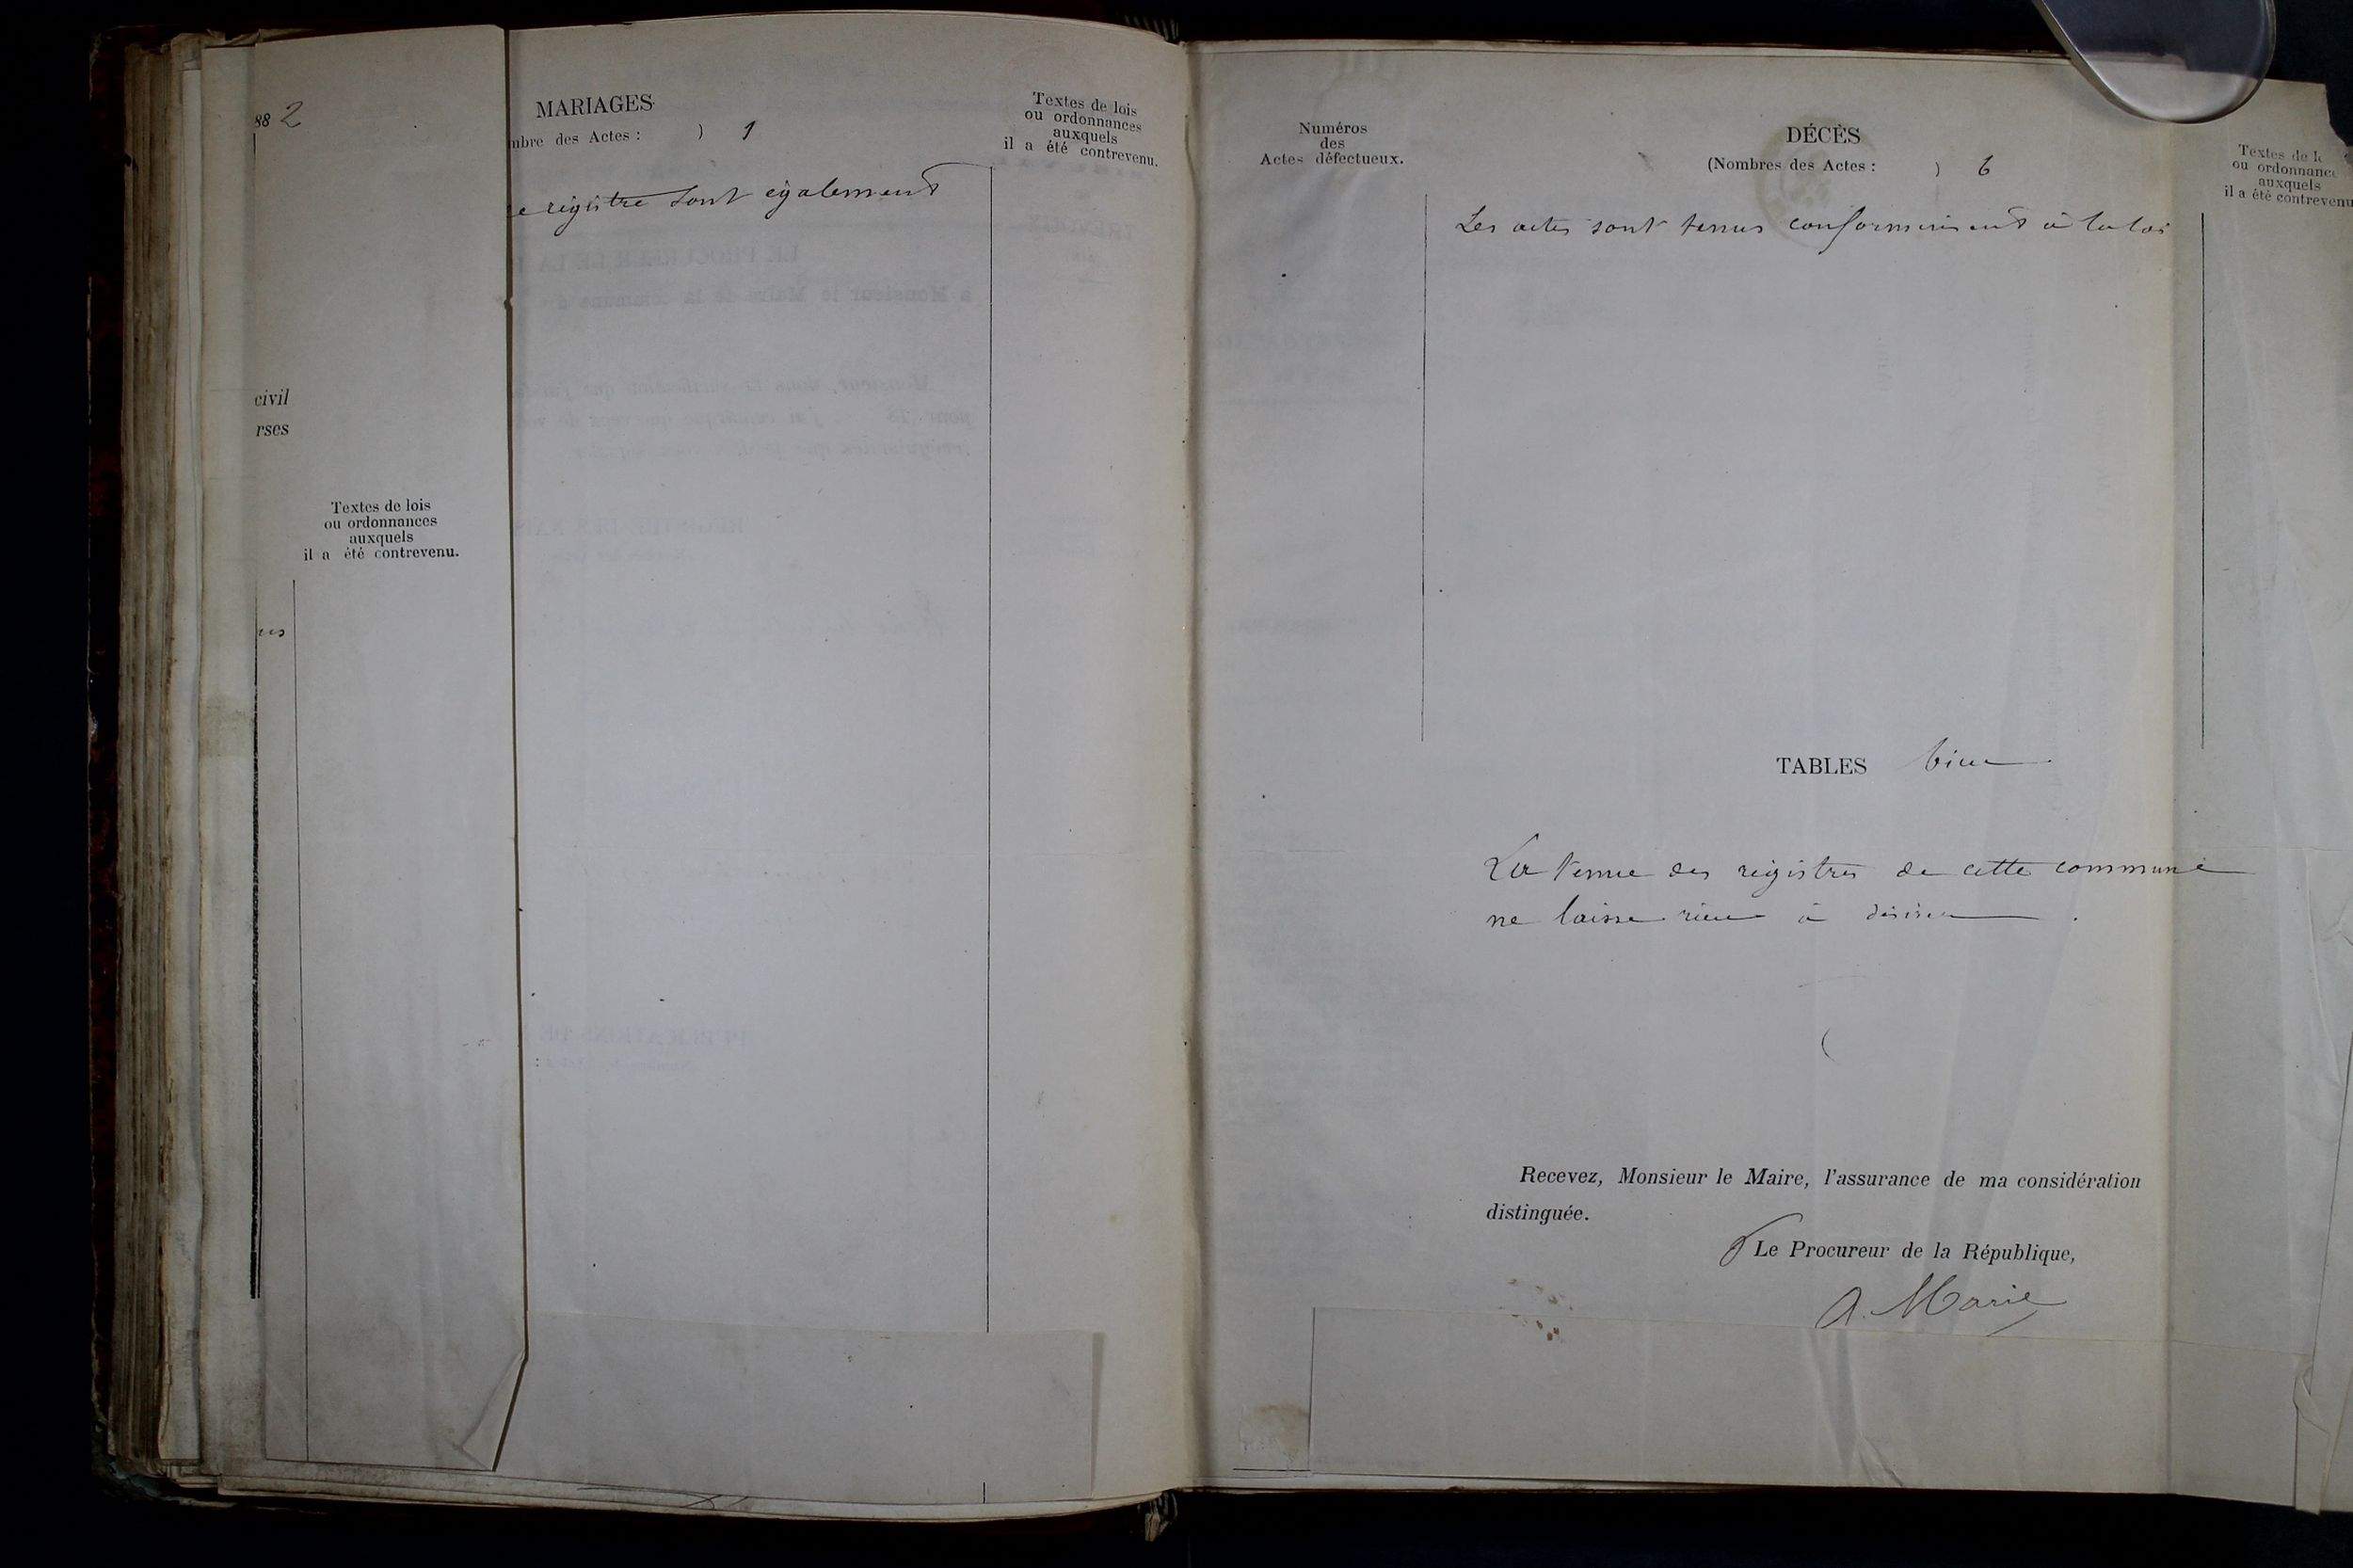 88 2
civil
rses
Textes de lois
ou ordonnances
auxquels
il a été contrevenu.
us
MARIAGES
mbre des Actes : ) 1
Textes de lois
ou ordonnances
auxquels
il a été contrevenu.
e registre sont également
Numéros
des
Actes défectueux.
DÉCÈS
(Nombres des Actes : ) 6
Textes de l
ou ordonnance
auxquels
il a été contrevenu
Les actes sont tenus conformément à la loi
TABLES bien
La tenue des registres de cette commune
ne laisse rien à désirer.
Recevez, Monsieur le Maire, l'assurance de ma considération
distinguée.
Le Procureur de la République,
A. Marie